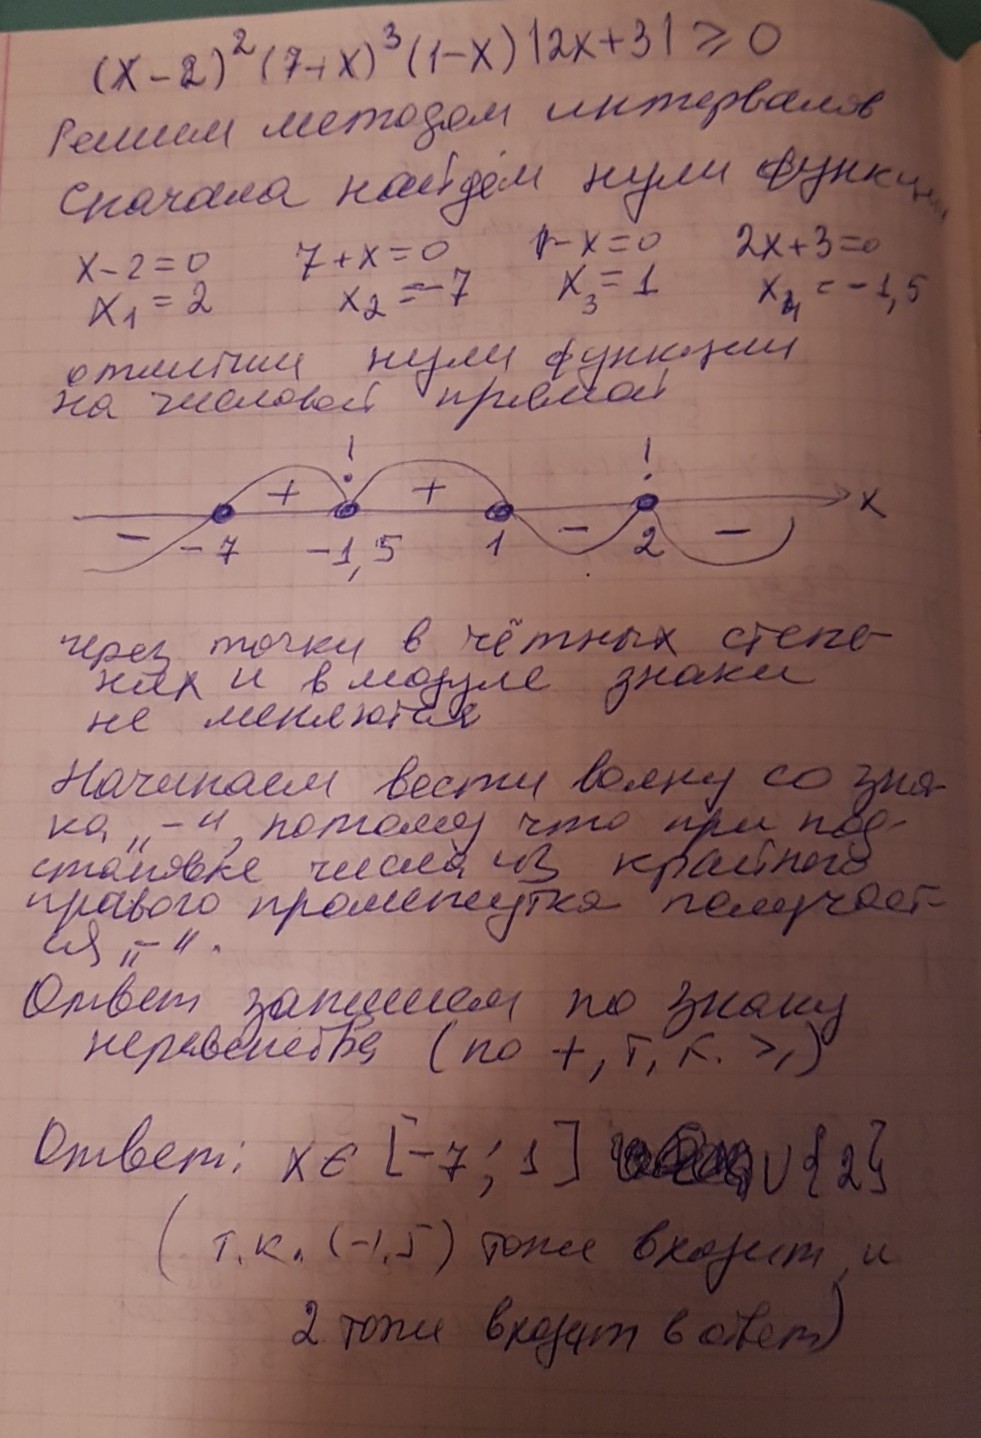 (x-2)²(7+x)³(1-x)|2x+3| ⩾ 0
Решим методом интервалов
Сначала найдём нули функции
x-2=0 7+x=0 1-x=0 2x+3=0
x₁=2 x₂=-7 x₃=1 x₄=-1,5
отметим нули функции
на числовой прямой
! !
+ + x
- -7 -1,5 1 - 2 -
через точки в чётных степе-
нях и в модуле знаки
не меняются
Начинаем вести волну со зна-
ка „-“, потому что при под-
становке числа из крайнего
правого промежутка получает-
ся „-“.
Ответ запишем по знаку
неравенства (по +, т.к. ⩾)
Ответ: x∈[-7; 1] ∪{2}
(т.к. (-1,5) тоже входит и
2 тоже входит в ответ)